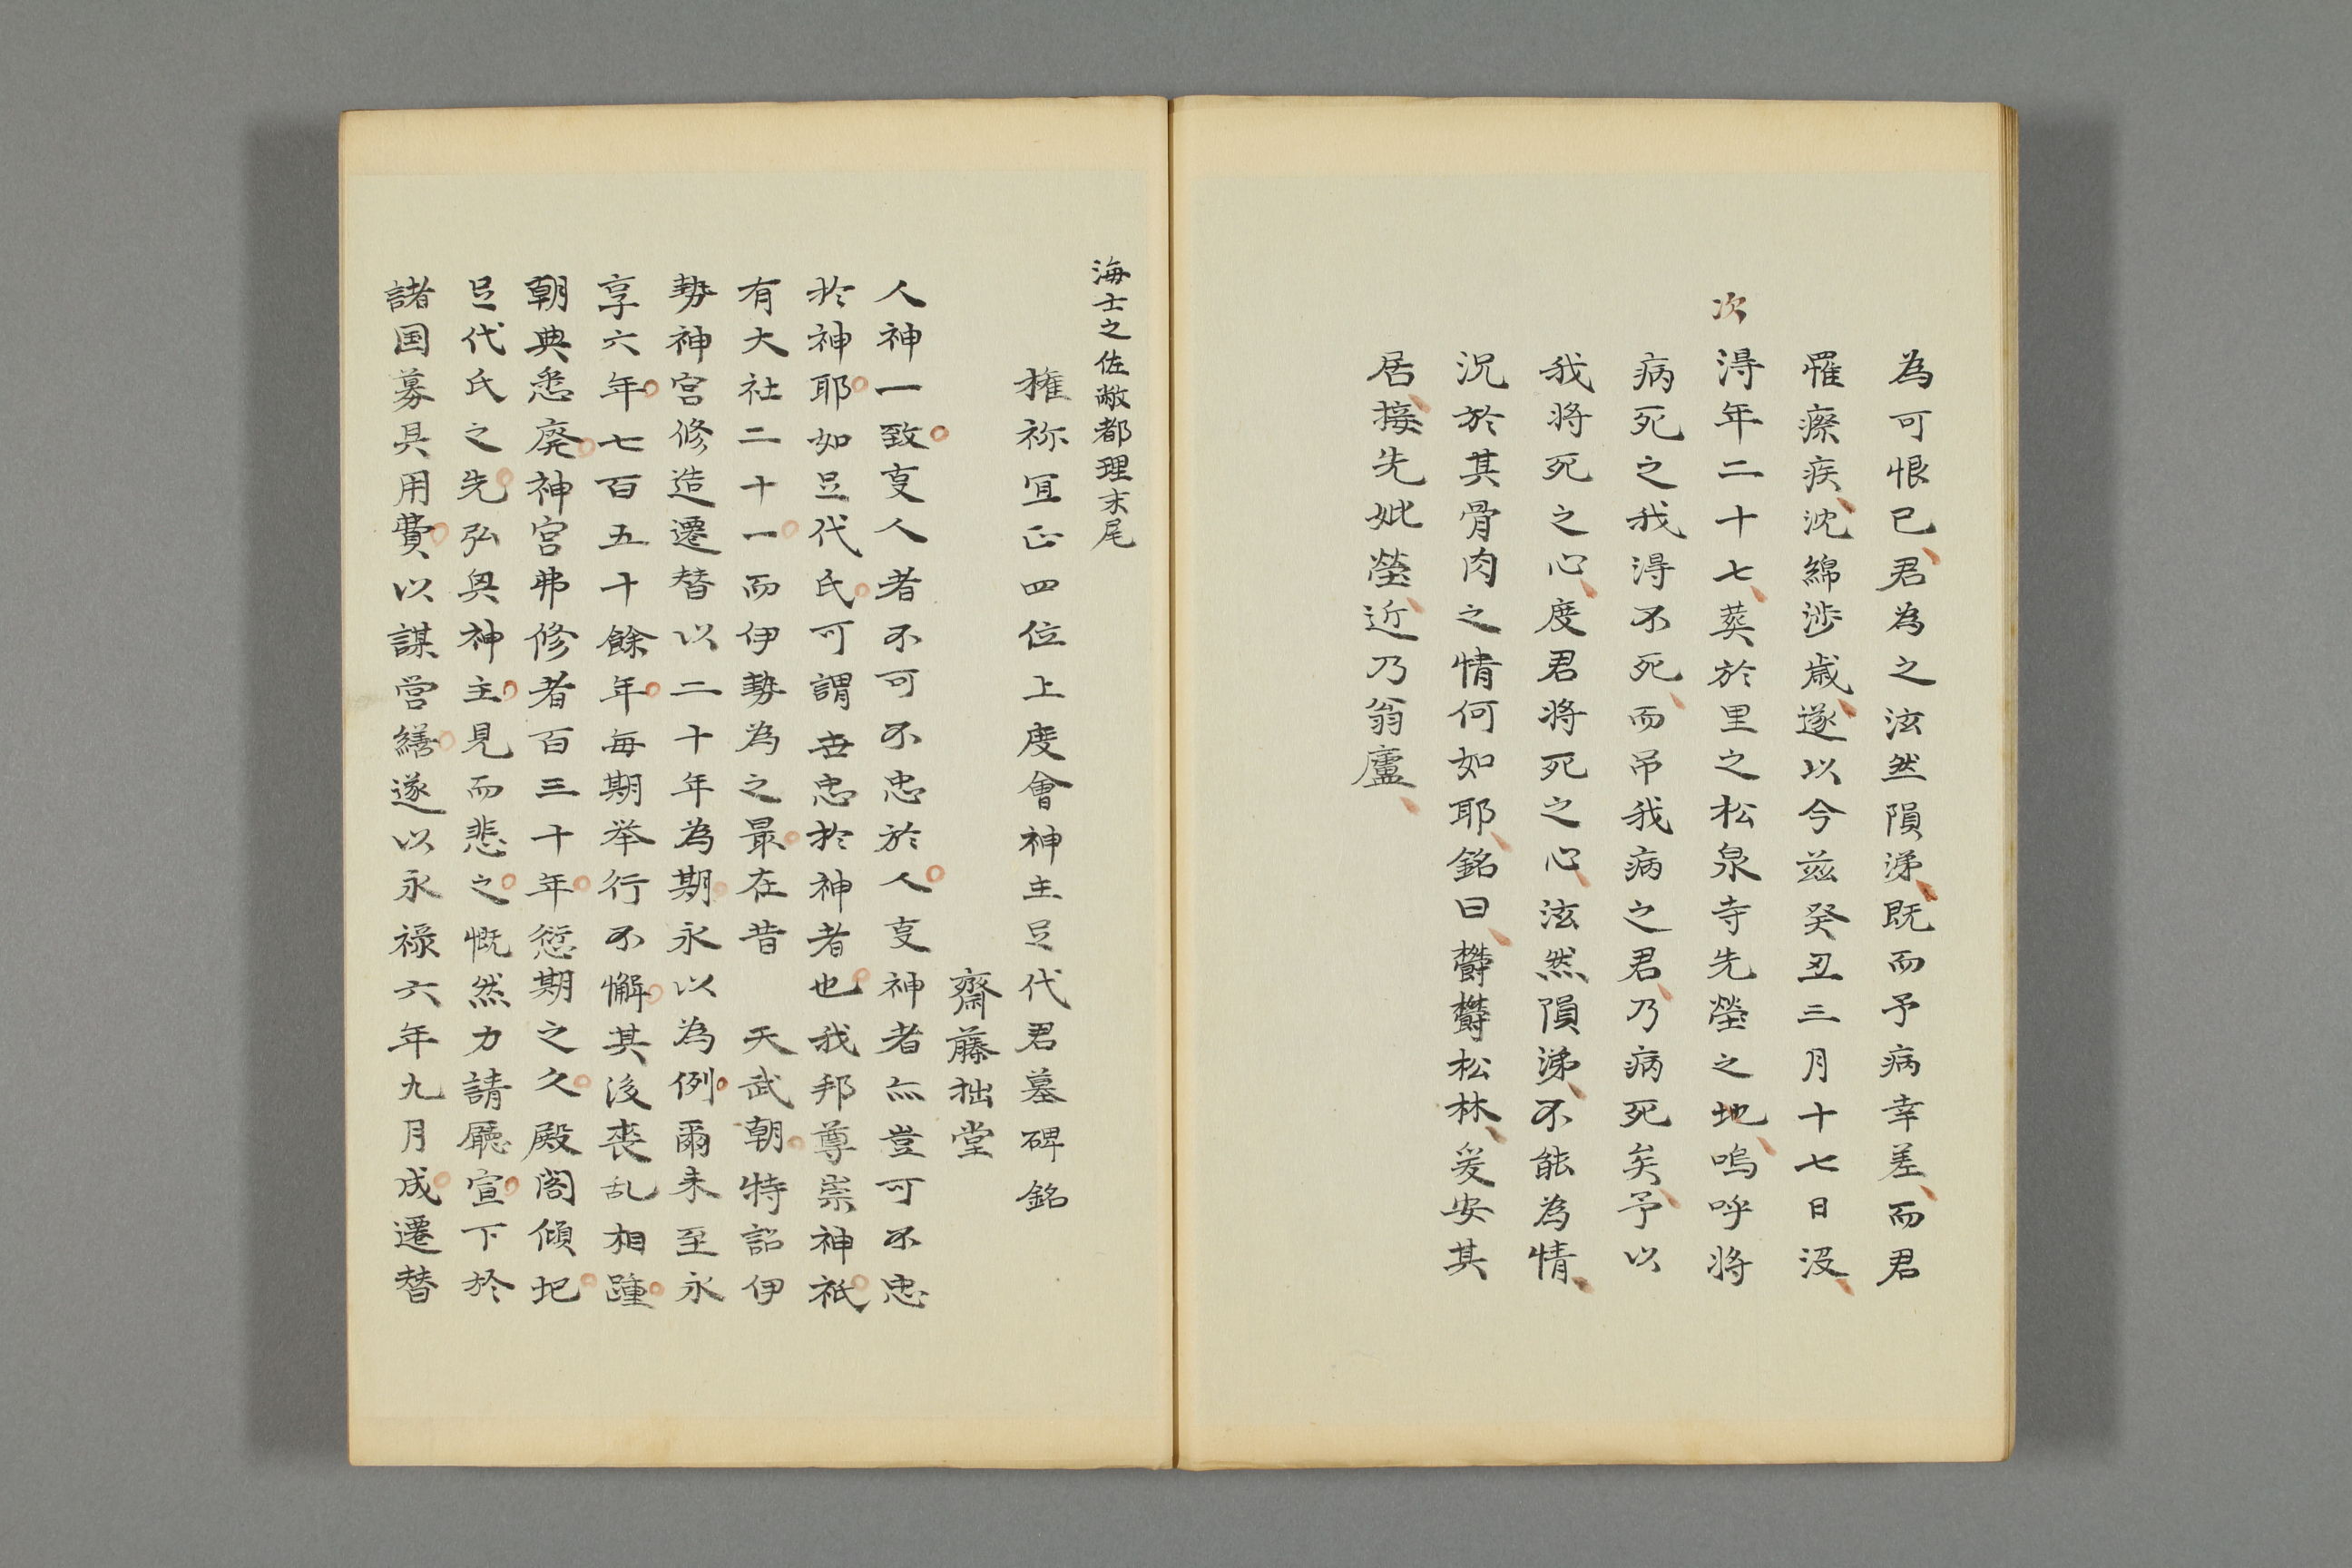 為可恨已君為之泫然隕涕既而予病幸差而君
罹瘵疾沈綿渉歳遂以今茲癸丑三月十七日没
次
淂年二十七葬於里之松泉寺先塋之地嗚呼将
病死之我淂不死而吊我病之君乃病死矣予以
我将死之心度君将死之心泫然隕涕不能為情
況於其骨肉之情何如耶銘曰欝欝松林爰安其
居接先妣塋近乃翁廬
海士之佐敝都理末尾
権祢冝正四位上度會神主𠯁代君墓碑銘
齋藤拙堂
人神一致叓人者不可不忠於人叓神者亦豈可不忠
於神耶如𠯁代氏可謂世忠於神者也我邦尊崇神祇
有大社二十一而伊勢為之最在昔　天武朝特詔伊
勢神宮修造遷替以二十年為期永以為例爾来至永
享六年七百五十餘年毎期举行不懈其後喪乱相踵
朝典悉廃神宮弗修者百三十年愆期之久殿閣傾圮
𠯁代氏之先弘興神主見而悲之慨然力請廳宣下於
諸国募具用費以謀営繕遂以永禄六年九月成遷替